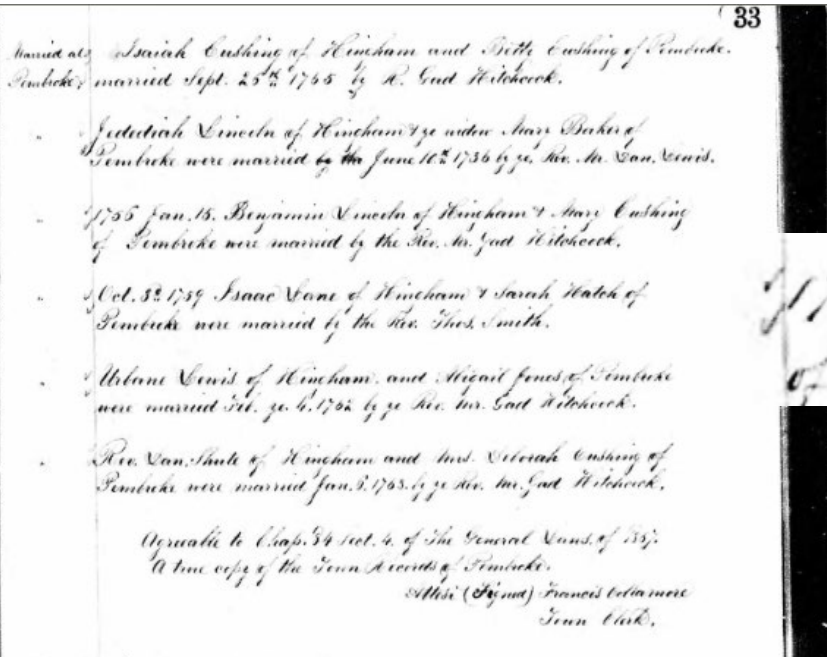 33
Married at Isaiah Cushing of Hingham and Betty Cushing of Pembroke.
Pembroke, married Sept. 25th 1765 by R. Gad Hitchcock.
" Jedediah Lincoln of Hingham & ye widow Mary Barker of
Pembroke were married by the June 10th 1736 by ye. Rev. Mr. Dan. Lewis.
" 1756 Jan. 15. Benjamin Lincoln of Hingham & Mary Cushing
of Pembroke were married by the Rev. Mr. Gad Hitchcock.
" Oct. 3d 1759 Isaac Lane of Hingham & Sarah Hatch of
Pembroke were married by the Rev. Thos. Smith.
" Urbane Lewis of Hingham. and Abigail Jones of Pembroke
were married Feb. ye. 4. 1762 by ye Rev. Mr. Gad Hitchcock.
" Rev. Dan. Shute of Hingham and Mrs. Deborah Cushing of
Pembroke were married Jan. 6. 1763. by ye Rev. Mr. Gad Hitchcock.
Agreeable to Chap. 84 Sect. 4. of The General Laws of 1857.
A true copy of the Town Records of Pembroke.
Attest (Signed) Francis Collamore
Town Clerk.